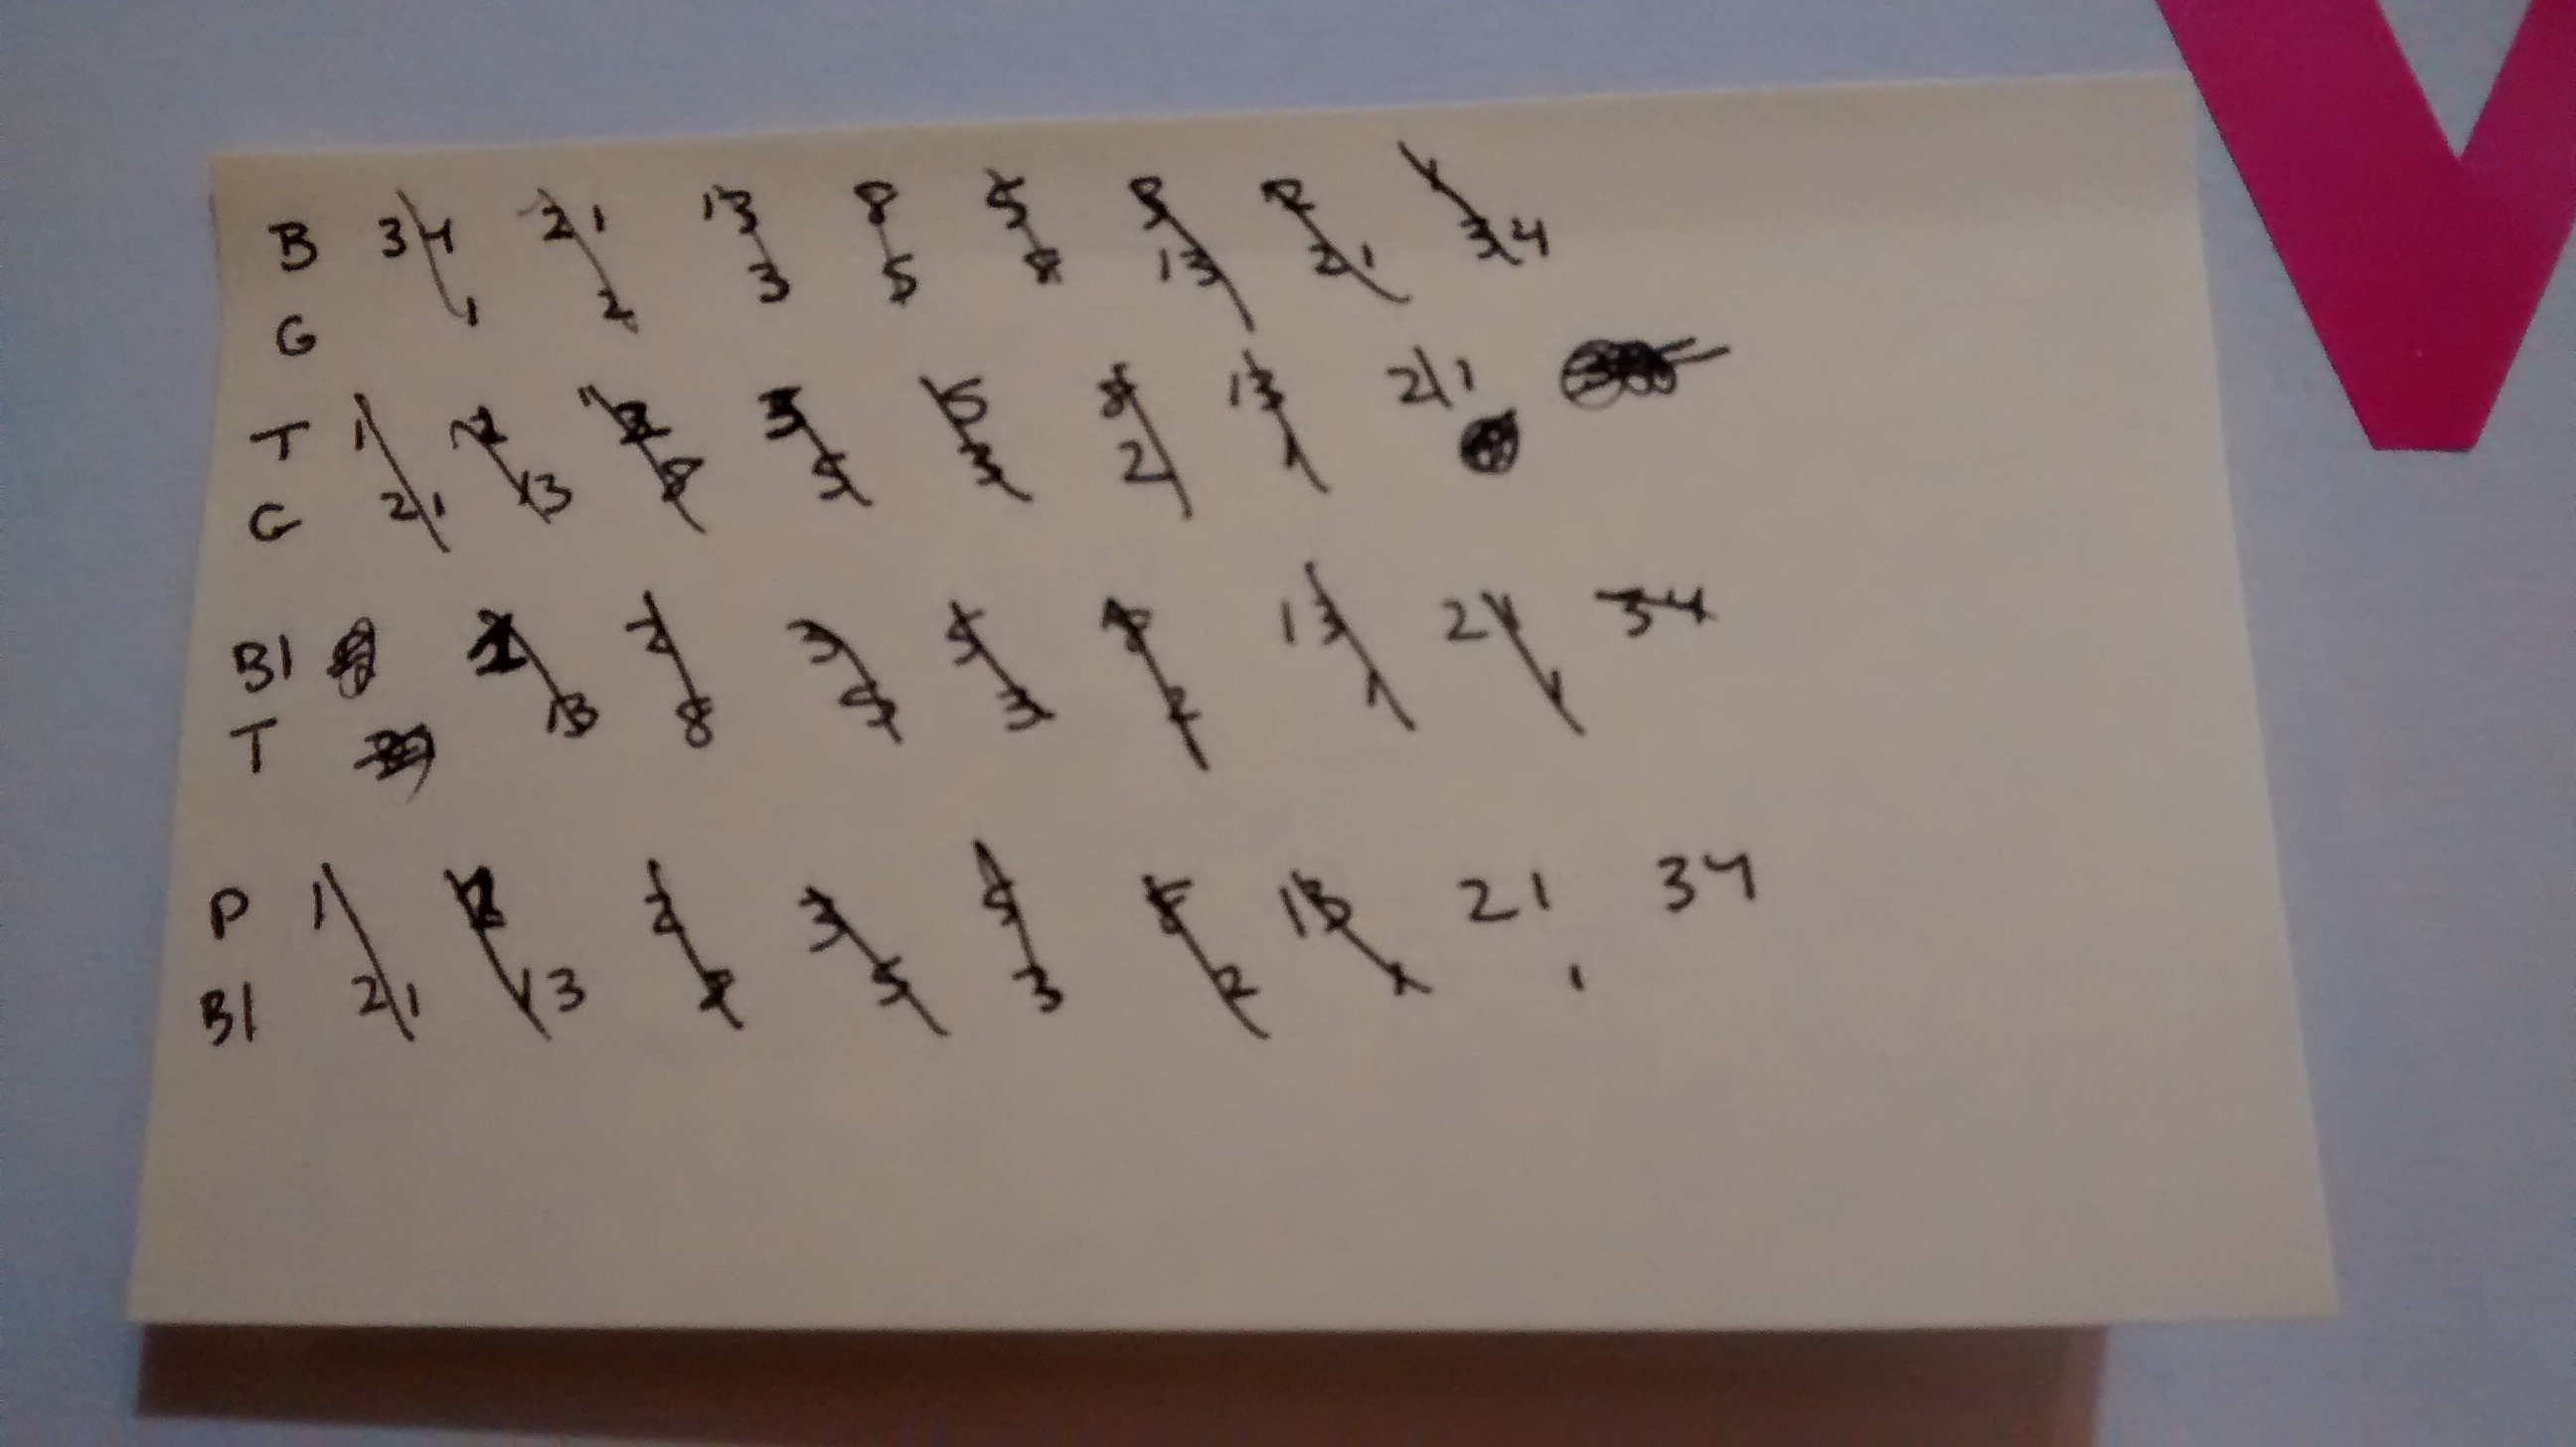 B 34 21 13 8 5 3 2 1
G 1 2 3 5 8 13 21 34
T 1 2 3 5 8 13 21
G 21 13 8 5 3 2 1
Bl 2 3 5 8 13 21 34
T 13 8 5 3 2 1 1
P 1 2 3 5 8 13 21 34
Bl 21 13 8 5 3 2 1 1